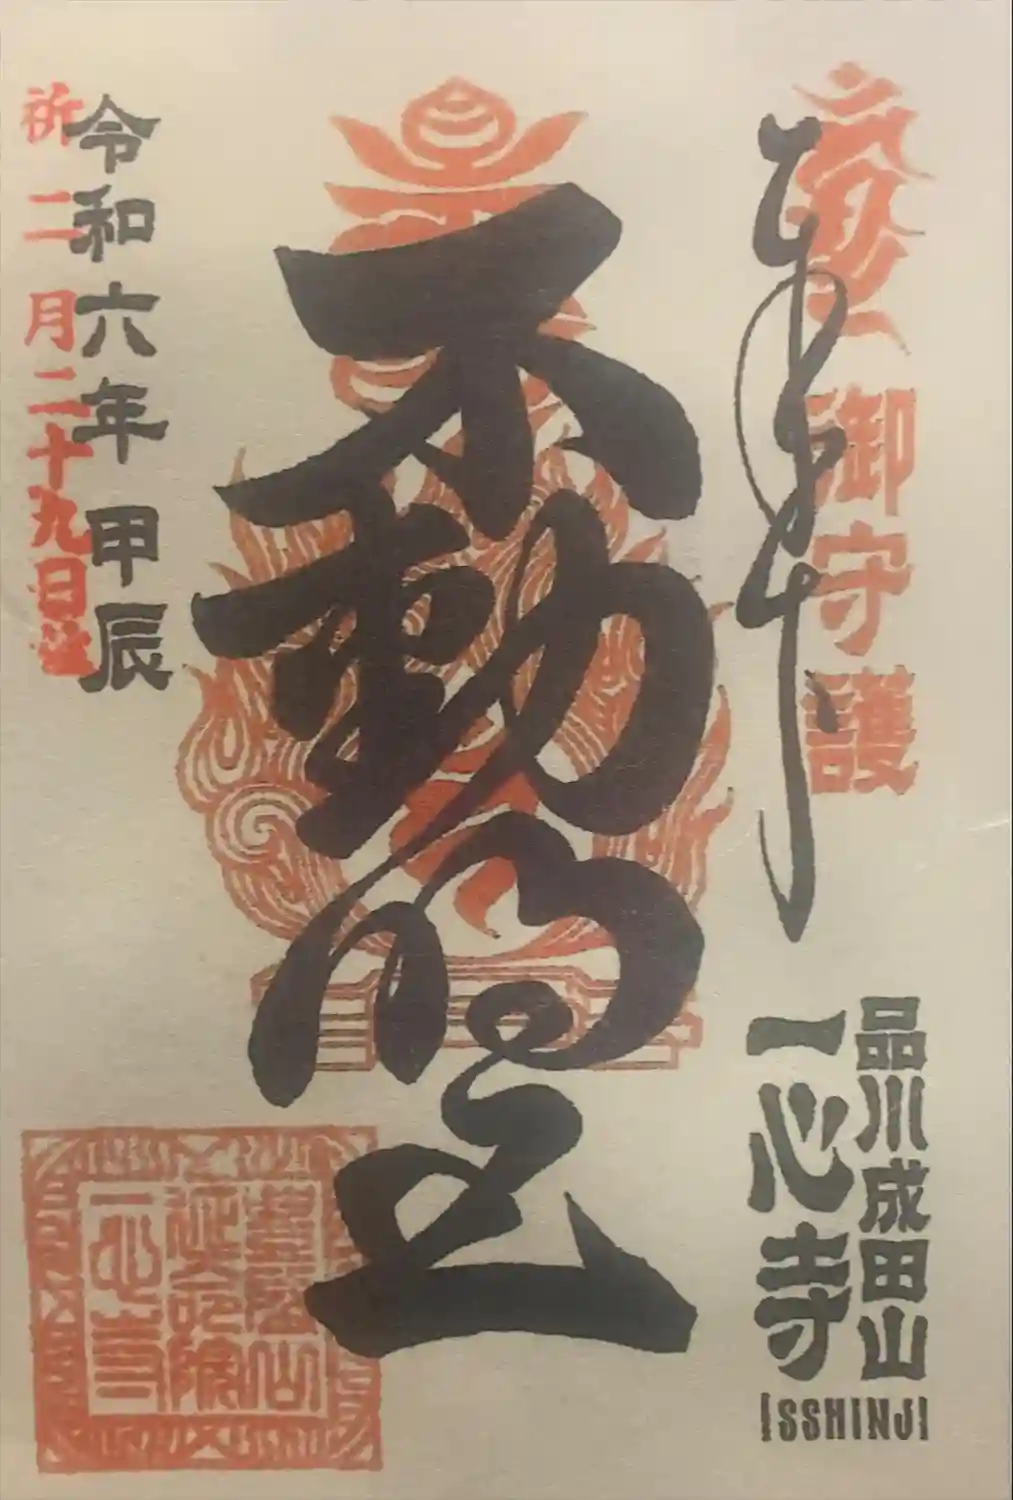 奉拝
御守護
品川成田山
一心寺
ISSHINJI
不動明王
令和六年 甲辰
祈 二月二十九日
延命院
一心寺